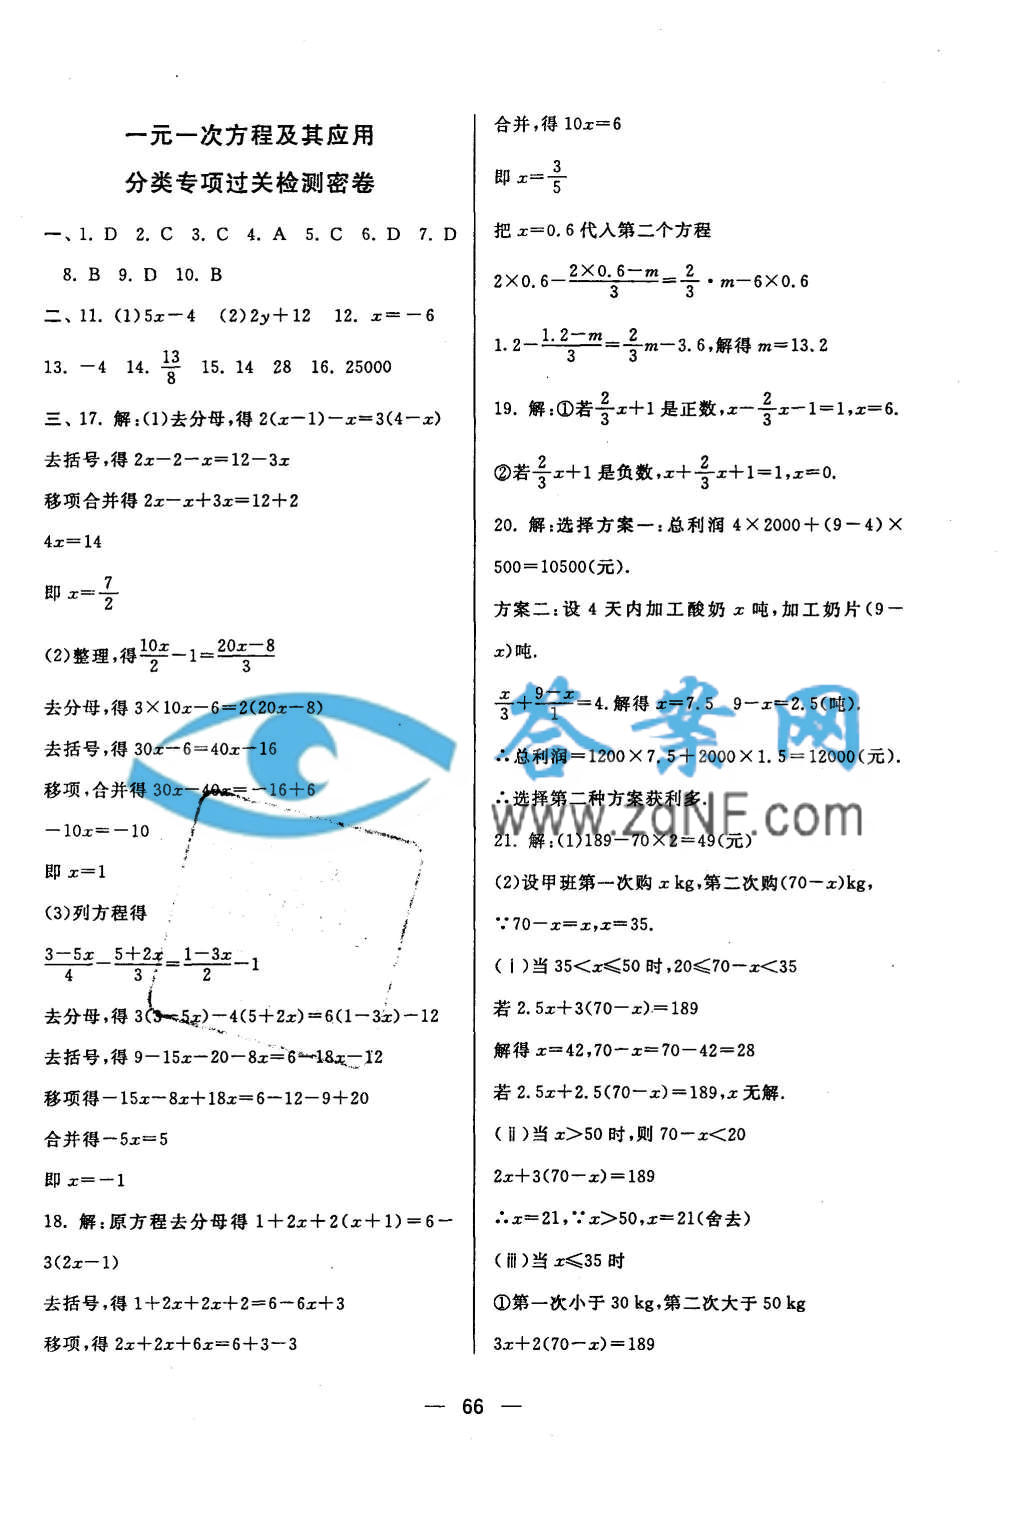 一元一次方程及其应用
分类专项过关检测密卷
一、1. D 2. C 3. C 4. A 5. C 6. D 7. D
8. B 9. D 10. B
二、11. (1)5x-4 (2)2y+12 12. x=-6
13. -4 14. 13/8 15. 14 28 16. 25000
三、17. 解:(1)去分母,得 2(x-1)-x=3(4-x)
去括号,得 2x-2-x=12-3x
移项合并得 2x-x+3x=12+2
4x=14
即 x=7/2
(2)整理,得 10x/2-1=(20x-8)/3
去分母,得 3×10x-6=2(20x-8)
去括号,得 30x-6=40x-16
移项,合并得 30x-40x=-16+6
-10x=-10
即 x=1
(3)列方程得
(3-5x)/4-(5+2x)/3=(1-3x)/2-1
去分母,得 3(3-5x)-4(5+2x)=6(1-3x)-12
去括号,得 9-15x-20-8x=6-18x-12
移项得-15x-8x+18x=6-12-9+20
合并得-5x=5
即 x=-1
18. 解:原方程去分母得 1+2x+2(x+1)=6-
3(2x-1)
去括号,得 1+2x+2x+2=6-6x+3
移项,得 2x+2x+6x=6+3-3
合并,得 10x=6
即 x=3/5
把 x=0.6 代入第二个方程
2×0.6-(2×0.6-m)/3=2/3·m-6×0.6
1.2-(1.2-m)/3=2/3m-3.6,解得 m=13.2
19. 解:①若2/3x+1 是正数,x-2/3x-1=1,x=6.
②若2/3x+1 是负数,x+2/3x+1=1,x=0.
20. 解:选择方案一:总利润 4×2000+(9-4)×
500=10500(元).
方案二:设 4 天内加工酸奶 x 吨,加工奶片(9-
x)吨.
x/3+(9-x)/1=4.解得 x=7.5 9-x=2.5(吨).
∴总利润=1200×7.5+2000×1.5=12000(元).
∴选择第二种方案获利多.
21. 解:(1)189-70×2=49(元)
(2)设甲班第一次购 x kg,第二次购(70-x)kg,
∵70-x=x,x=35.
(ⅰ)当 35<x≤50 时,20≤70-x<35
若 2.5x+3(70-x)=189
解得 x=42,70-x=70-42=28
若 2.5x+2.5(70-x)=189,x 无解.
(ⅱ)当 x>50 时,则 70-x<20
2x+3(70-x)=189
∴x=21,∵x>50,x=21(舍去)
(ⅲ)当 x≤35 时
①第一次小于 30 kg,第二次大于 50 kg
3x+2(70-x)=189
— 66 —
答案网
www.zdNF.com